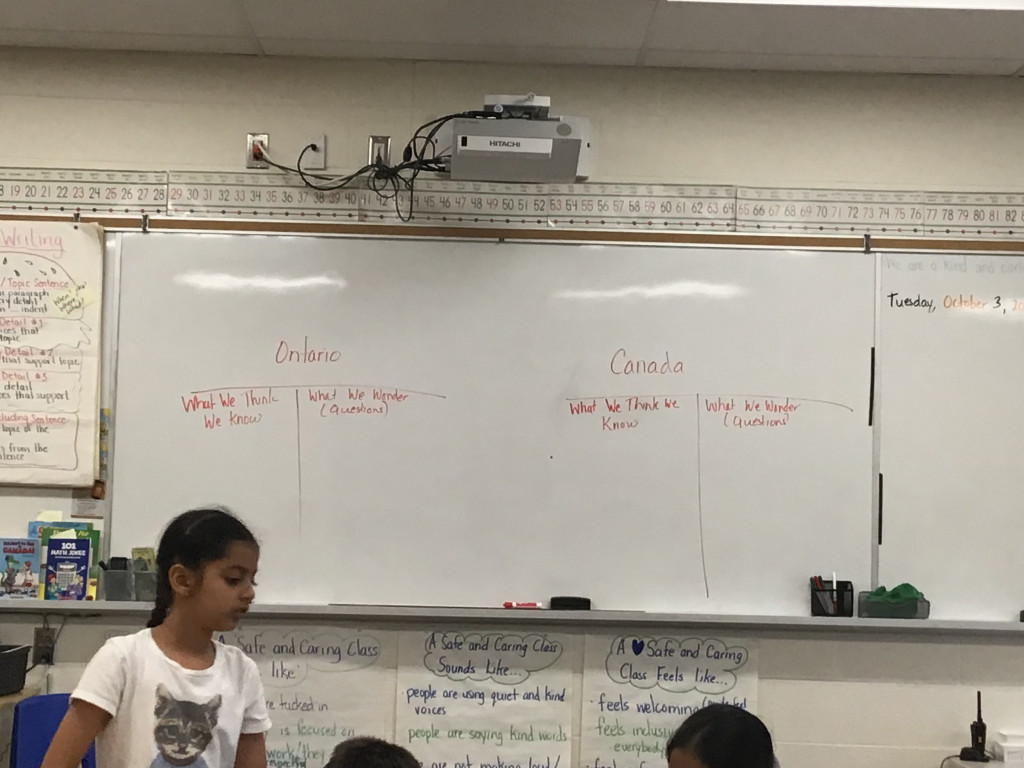 HITACHI
19 20 21 22 23 24 25 26 27 28 29 30 31 32 33 34 35 36 37 38 39 40 41 42 43 44 45 46 47 48 49 50 51 52 53 54 55 56 57 58 59 60 61 62 63 64 65 66 67 68 69 70 71 72 73 74 75 76 77 78 79 80 81 82
Writing
Topic Sentence
paragraph
detail
indent
Detail #1
that
topic
Detail #2
that support topic
Detail #3
detail
that support
Sentence
topic of the
from the
We are a kind and
Tuesday, October 3,
Ontario
What We Think
We Know
What We Wonder
(Questions)
Canada
What We Think We
Know
What We Wonder
(Questions
CANADA!
101
MATH JOKES
A Safe and Caring Class
like
tucked in
is focused on
work/they
A Safe and Caring Class
Sounds Like...
· people are using quiet and kind
voices
people are saying kind words
are not making loud/
A ♥ Safe and Caring
Class Feels like...
· feels welcoming
feels
everybody